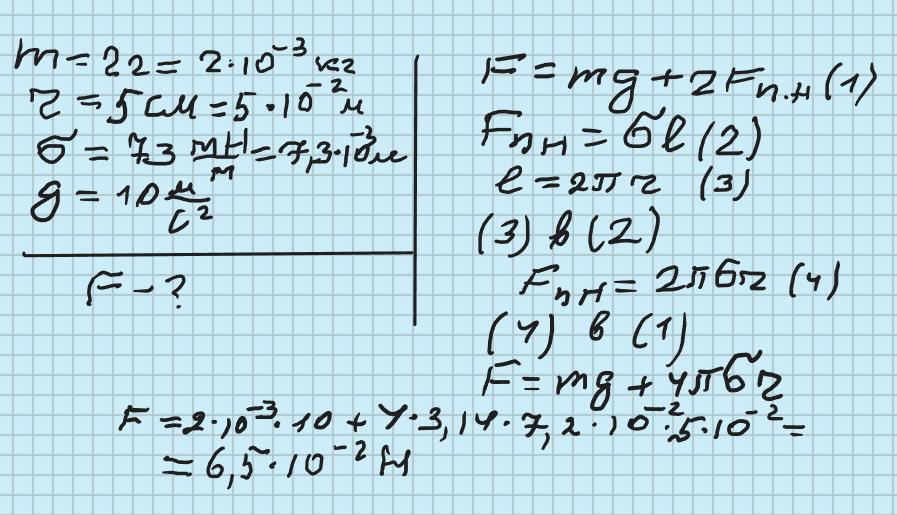 m = 2г = 2·10⁻³ кг
r = 5 см = 5·10⁻² м
σ = 73 мН/м = 7,3·10⁻³ м
g = 10 м/с²
F - ?
F = mg + 2Fп.н (1)
Fпн = σl (2)
l = 2πr (3)
(3) в (2)
Fпн = 2πσr (4)
(4) в (1)
F = mg + 4πσr
F = 2·10⁻³·10 + 4·3,14·7,2·10⁻²·5·10⁻² =
= 6,5·10⁻² Н